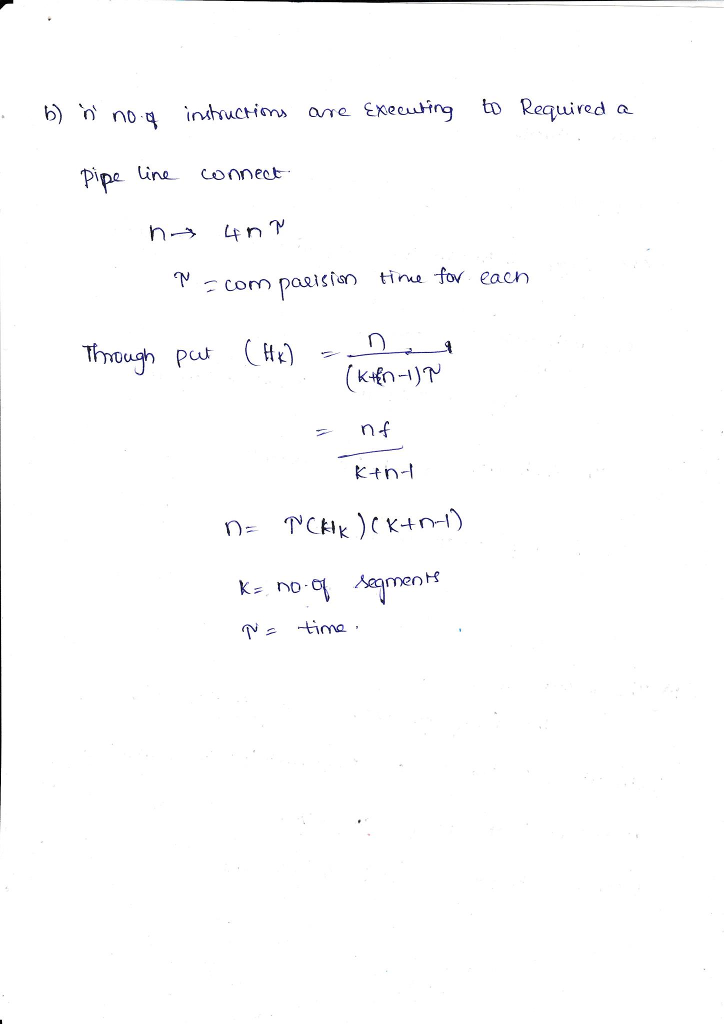 b) 'n' no.of instructions are Executing to Required a
pipe line connect.
n → 4nτ
τ = com paeision time for each
Through put (Hk) = n / (k+(n-1)τ
= nf / k+n-1
n = τ(Hk)(k+n-1)
k = no.of segments
τ = time.